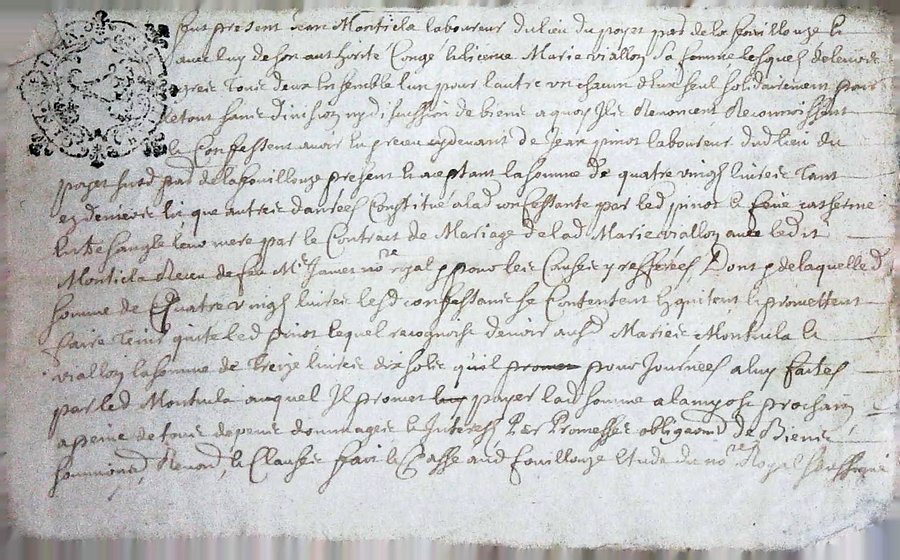 fut present Jean Montiela laboureur du lieu du poyet par de la fouillouze le
avec luy de son authorite Congé & licence Marie viallon Sa femme lesquels de leur
greis Tous deux Ensemble lun pour lautre un chacun deux seul solidairement pour
le tout sans division ny discussion de biens a quoy Ils Renoncent Reconnoissent
& Confessent avoir Eu & receu cy devant de Jean pinot laboureur dud lieu du
poyet susd par de la fouillouze present & aceptant la somme de quatre vingts livres Tant
en deniers que autres danrées Constitué a lad confessante par led pinot & feüe catherine
leur mere par le Contrat de Mariage de lad Marie viallon avec ledit
Montiela Receu de feu Me James nore royal pour les Causes y refferées Dont & de laquelle d
somme de Quatre vingts livres lesd confessants se Contentent En quitent & promettent
faire Tenir quite led pinot lequel recognoist devoir ausd Mariés Montiela &
viallon la somme de Treize livres dix sols quil pour Journées a luy faites
par led Montiela auquel Il promet payer lad somme a la my aost prochain
a peine de tous depens dommages & Interests Par Promesses obligaons de Biens
soummions Renons & Clauses fait & Passé aud fouillouze Etude du nore Royal soussigné